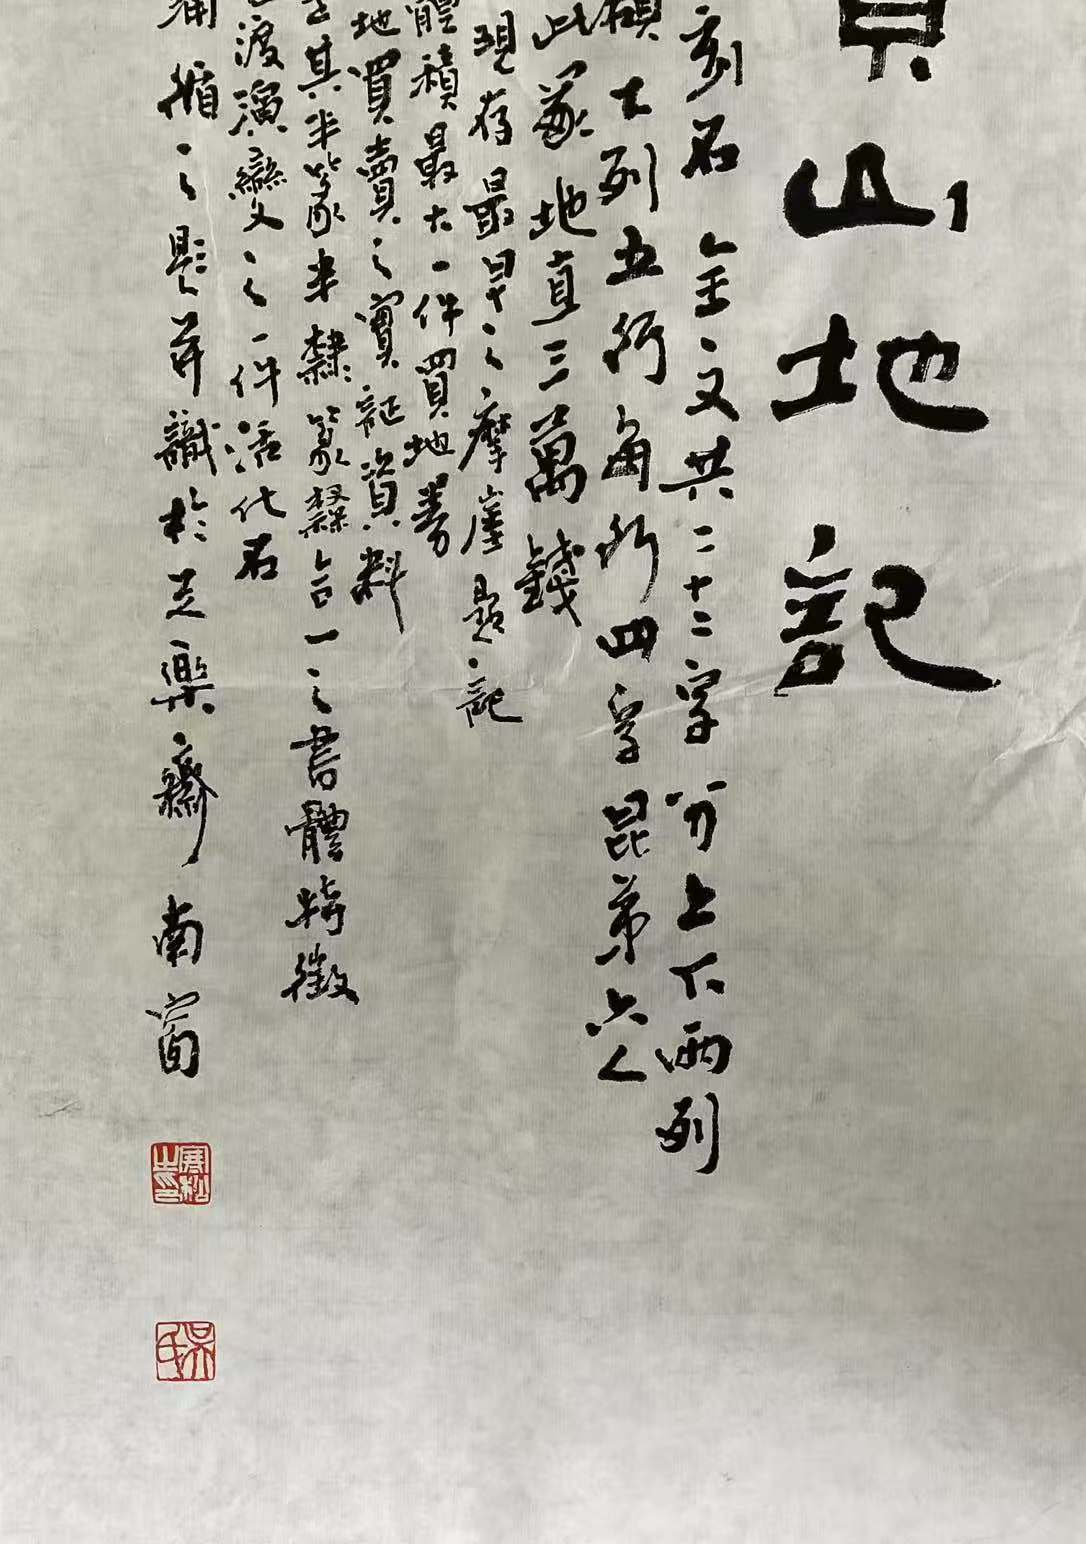 買山地記
刻石 全文共二十二字分上下兩列
額 上列五行每行四字昆弟六人
此冢地直三萬錢
現存最早之摩崖題記
體積最大一件買地券
地買賣之實証資料
其半篆半隸篆隸合一之書體特徵
渡演變之一件活化石
循之題并識於天樂齋 南窗
寒松之印
吳氏